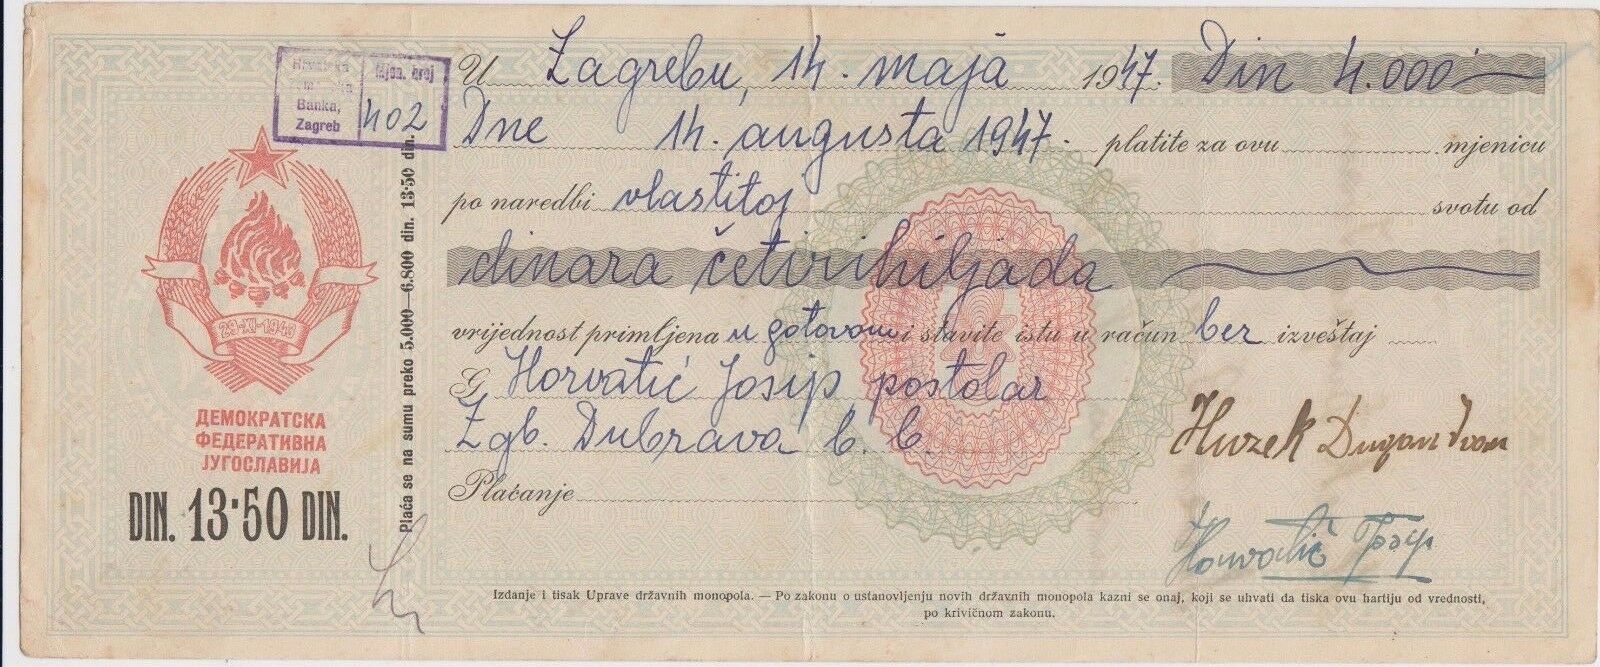 Banka,
Zagreb
Mjen. broj
402
U Zagrebu, 14. maja 1947. Din 4.000
Dne 14. augusta 1947. platite za ovu mjenicu
po naredbi vlastitoj svotu od
dinara četirihiljada
vrijednost primljena u gotovom i stavite istu u račun bez izveštaj
G. Horvatić Josip postolar
Zgb. Dubrava b. b.
Plaćanje
Huzek Dugan Ivan
Horvatić Josip
Plaća se na sumu preko 5.000—6.800 din. 13·50 din.
29-XI-1943
ДЕМОКРАТСКА
ФЕДЕРАТИВНА
ЈУГОСЛАВИЈА
DIN. 13·50 DIN.
Izdanje i tisak Uprave državnih monopola. — Po zakonu o ustanovljenju novih državnih monopola kazni se onaj, koji se uhvati da tiska ovu hartiju od vrednosti,
po krivičnom zakonu.